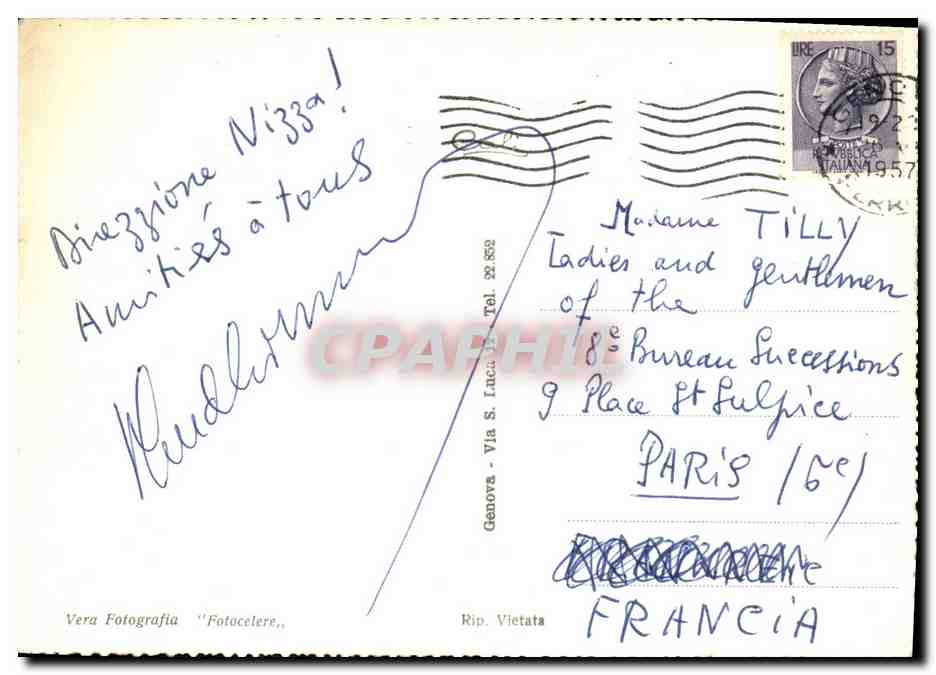 Direzzione Nizza!
Amitiés à tous
LIRE 15
POSTE
REPVBBLICA
ITALIANA
1957
Madame TiLLY
Ladies and gentlemen
of the
8e Bureau Successions
9 Place St Sulpice
PARiS (6e)
FRANCiA
Genova - Via S. Luca 12 - Tel. 22.852
CPAPHIL
Vera Fotografia "Fotocelere,,
Rip. Vietata